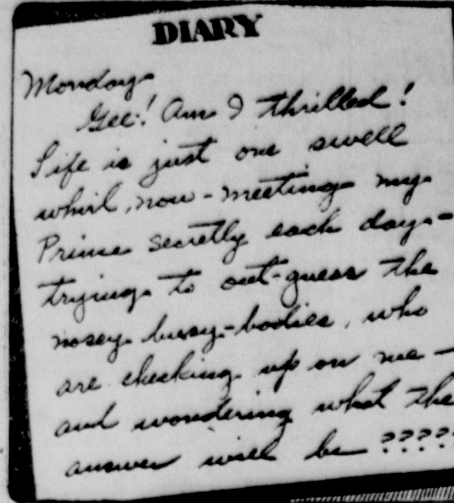 DIARY
Monday
Gee! Am I thrilled!
Life is just one swell
whirl, now - meeting my
Prince secretly each day -
trying to out-guess the
nosey busy-bodies, who
are checking up on me -
and wondering what the
answer will be ????